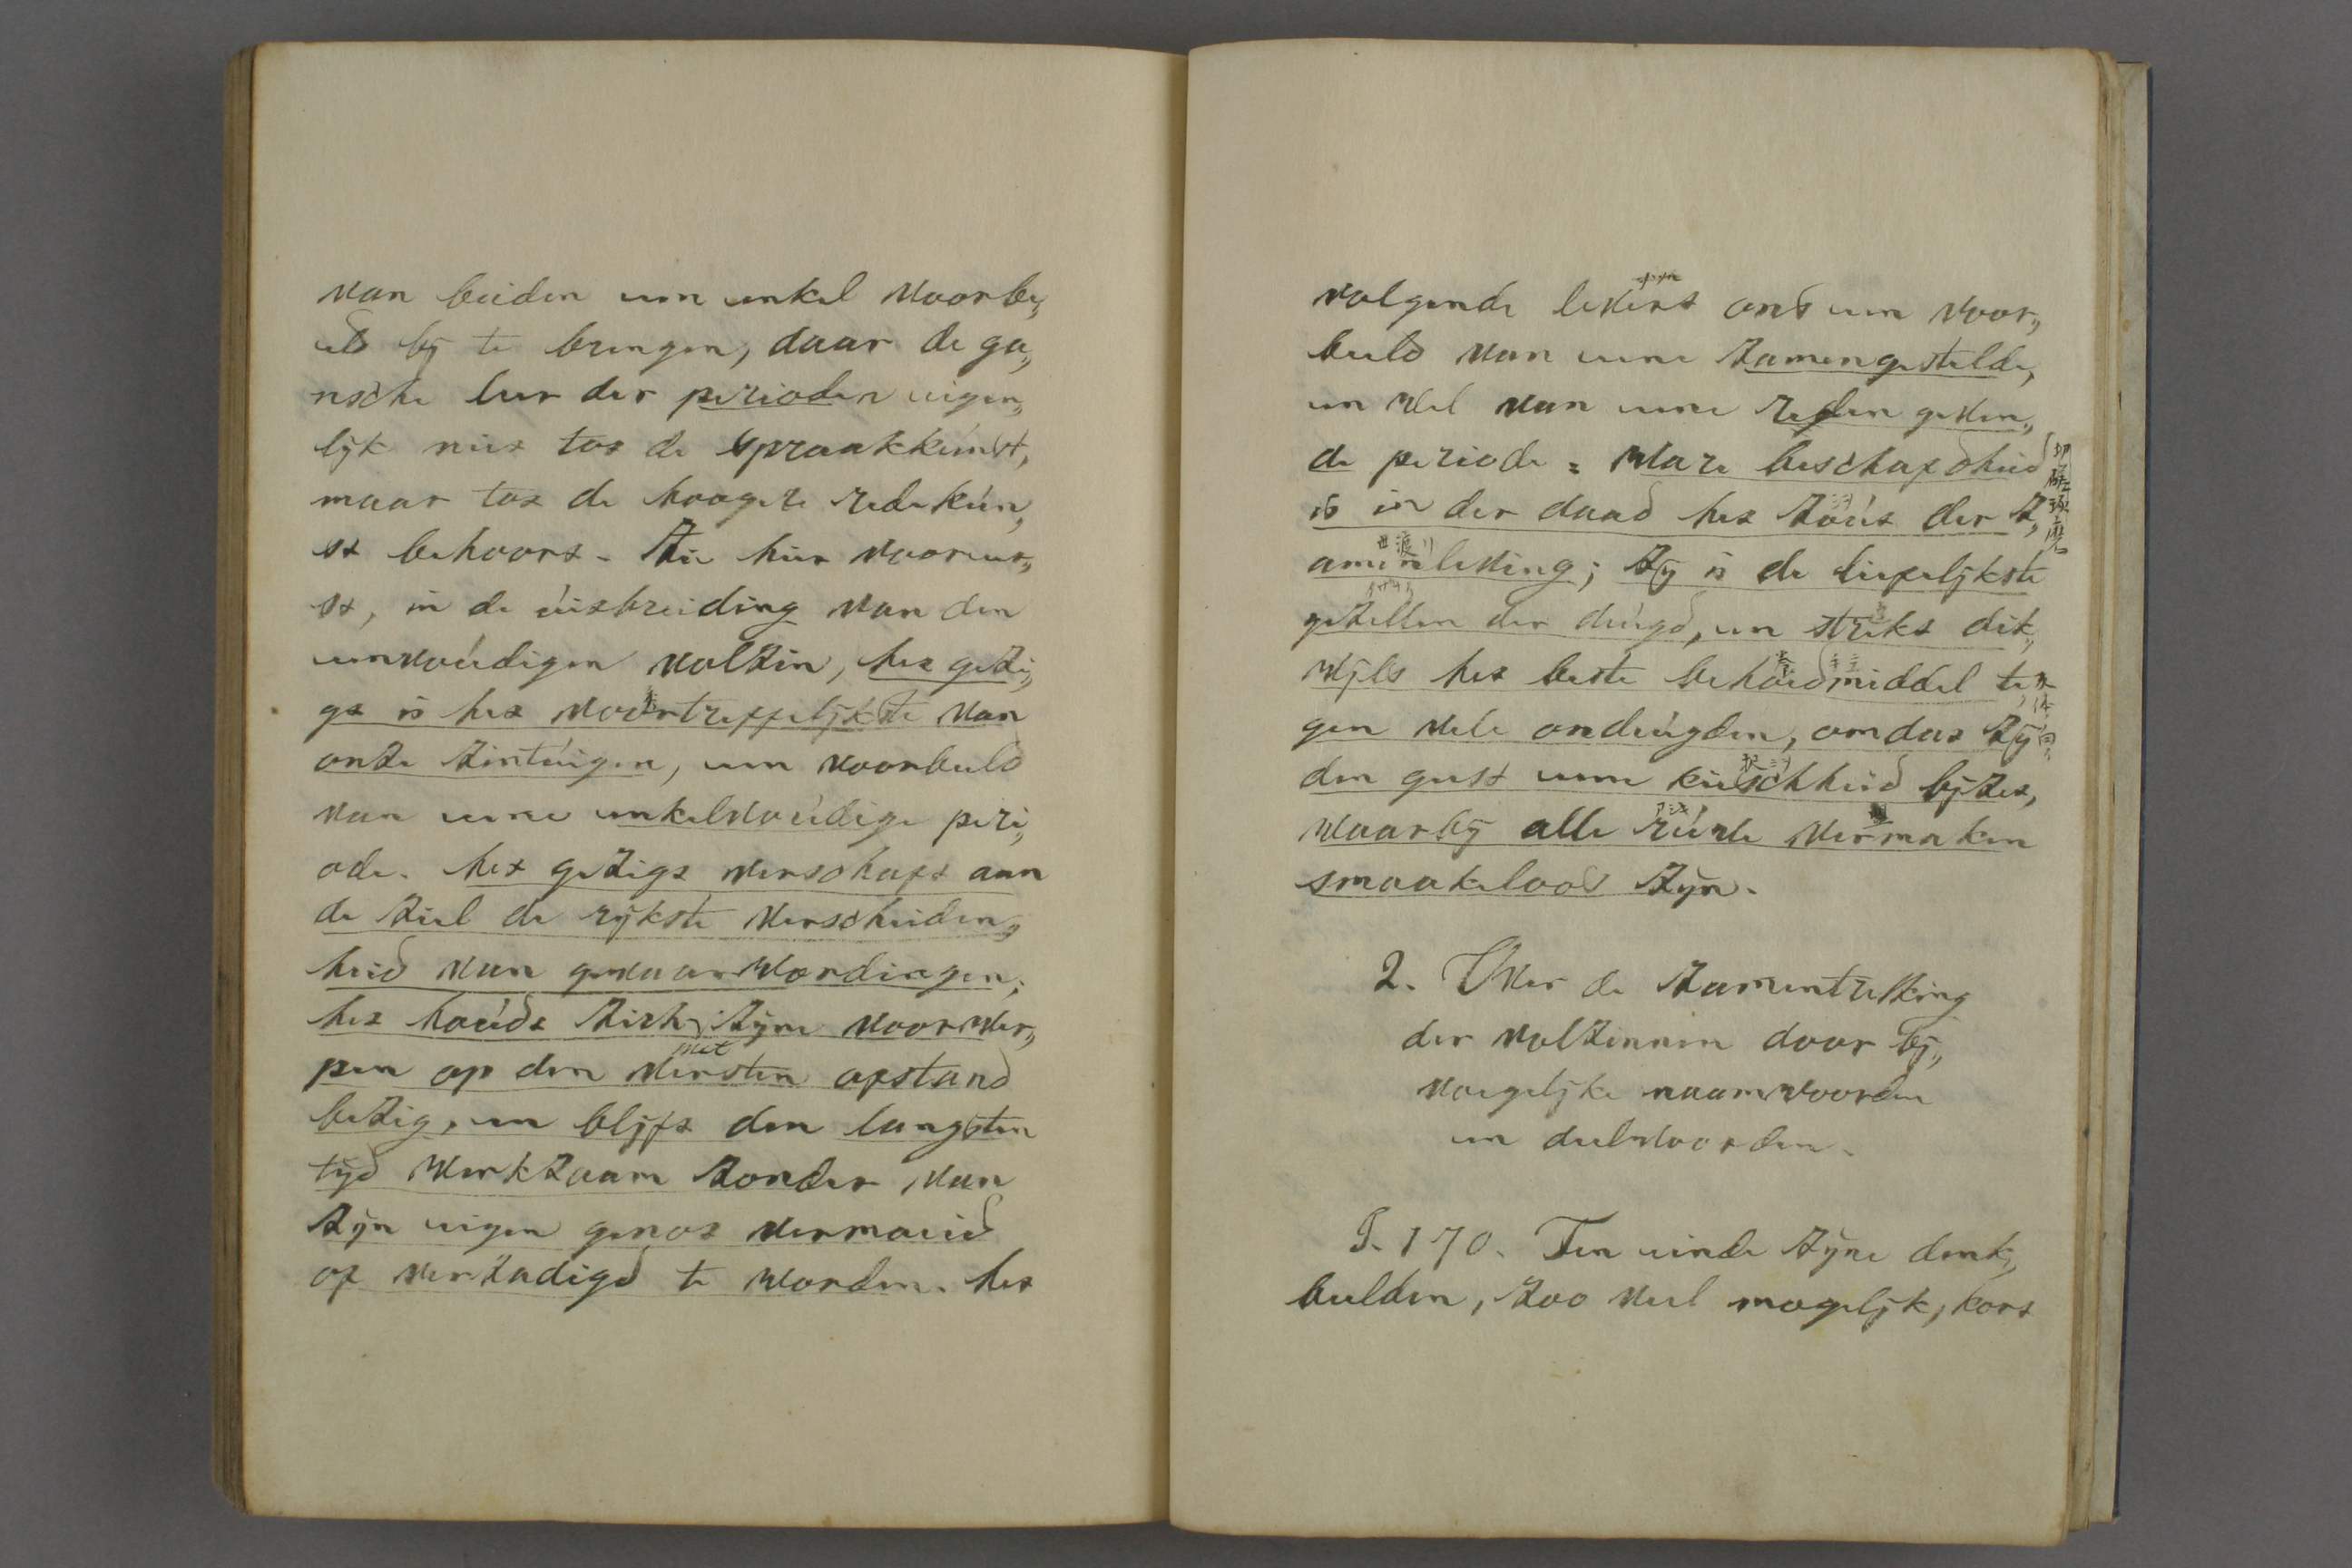 van beiden een enkel voorbe„
eld bij te brengen, daar de ga„
nsche leer der perioden eigen„
lijk niet tot de spraakkúnst,
maar tot de hoogere redekún„
st behoort. Zie hier vooreer„
st, in de úitbreiding van den
eenvoúdigen volzin, het gezi„
gt is het voortreffelijkste van
onze zintúigen, een voorbeeld
van eene enkelvoúdige peri„
ode. het gezigt verschaft aan
de ziel de rijkste verscheiden„
heid van gewaarwordingen;
het hoúdt zich zijne voorwer„
met
pen op den versten afstand
bezig, en blijft den langsten
tijd werkzaam zonder van
zijn eigen genot vermoeid
of verzadigd te worden. het
volgende levert ons een voor„
beeld van eene zamengestelde,
en wel van eene reden geven„
de periode = ware beschafdheid
is in der daad het zoút der z„
世渡リ
amenleving; zij is de liefelijkste
gezellen der deúgd, en strekt dik„
wijls het beste behoedmiddel te„
gen vele ondeúgden, omdat zij
den geest eene kieschheid bijzet,
waarbij alle rúwe vermaken
smaakeloos zijn.
2. Over de zamentrekking
der volzinnen door bij„
voegelijke naamwoorden
en deelwoorden.
§. 170. Ten einde zijne denk„
beelden, zoo veel mogelijk, kort